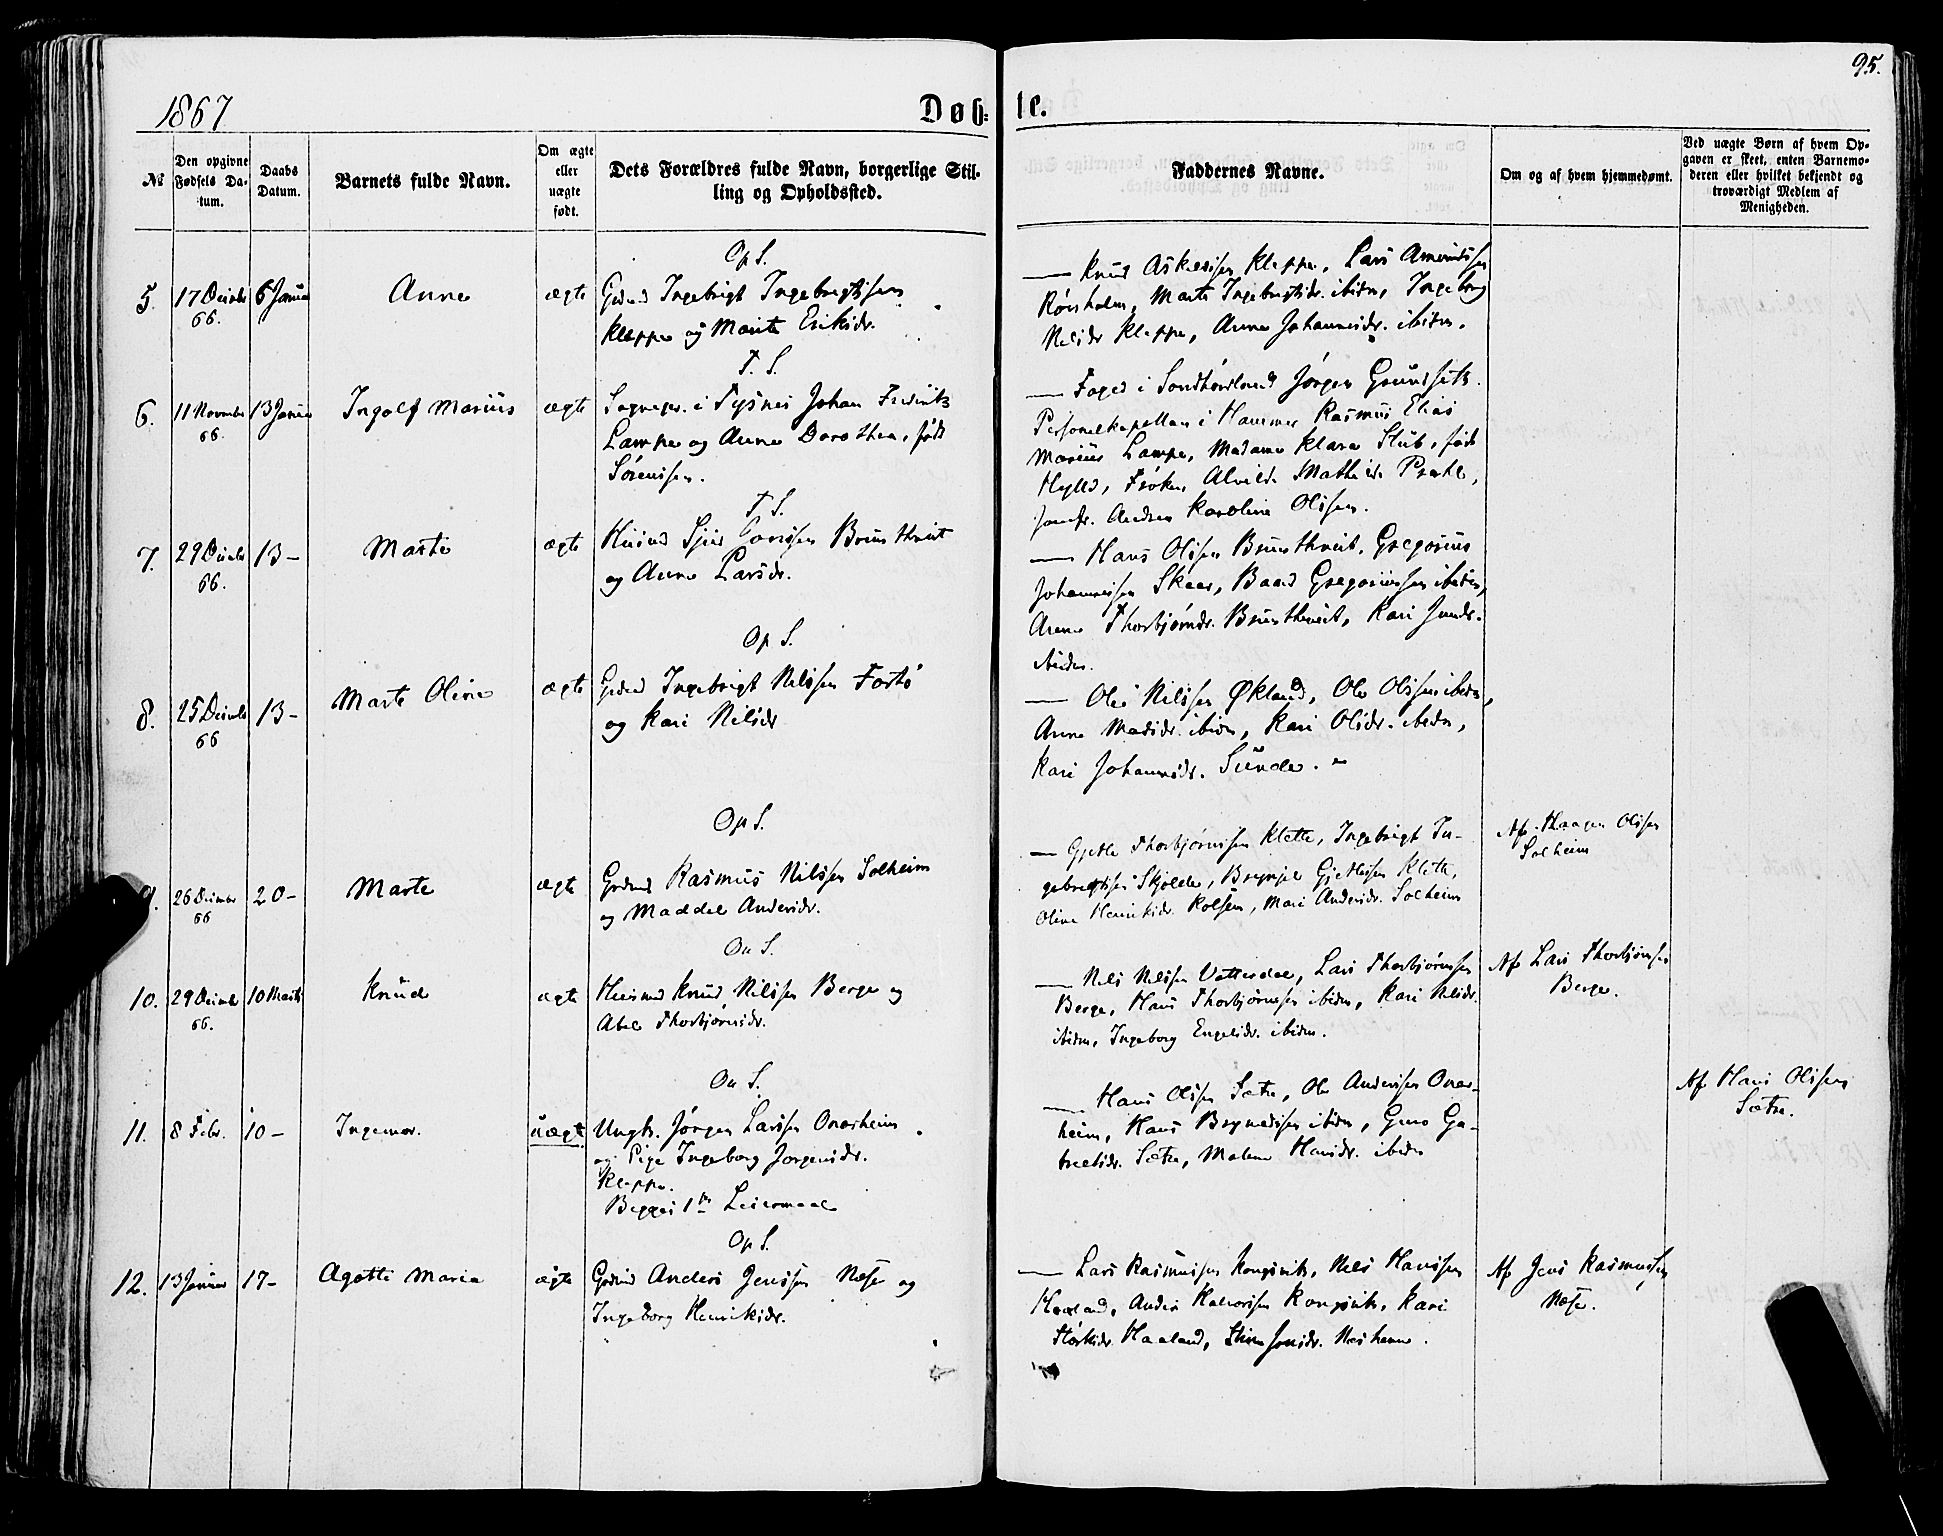 95.
1867
Døb-
te.
№
Den opgivne
Fødsels Da-
tum.
Daabs
Datum.
Barnets fulde Navn.
Om ægte
eller
uægte
født.
Dets Forældres fulde Navn, borgerlige Stil-
ling og Opholdssted.
Faddernes Navne.
Om og af hvem hjemmedømt.
Ved uægte Børn af hvem Op-
gaven er skeet, enten Barnemo-
deren eller hvilket bekjendt og
troværdigt Medlem af
Menigheden.
Op S.
5. 17 Decmbr 6 Januar Anne ægte Gdmd Ingebrigt Ingebrigtsen
66.
Kleppe og Marite Eriksdr.
— Knud Askeldsen Kleppe, Lars Amundsen
Rörsholm, Marte Ingebrigtsdr. ibidm, Ingeborg
Nelsdr Kleppe, Anna Johannesdr. ibidm.
T. S.
6. 11 Novmbr 13 Januar Ingolf Marius ægte Sognepr. i Tysnes Johan Fredrik
66.
Lampe og Anne Dorothea, født
Sörensen.
— Foged i Söndhordland Jörgen Grundseth.
Personelkapellan i Hammer Rasmus Elias
Marius Lampe, Madame Klara Stub, født
Hylld, Fröken Alvilde Mathilde Prahl,
Jomfr. Andrea Karoline Olsen.
T S.
7. 29 Decmbr 13 - Marte ægte Huusmd Sjur Brunthveit
66.
og Anne Larsdr.
— Hans Olsen Brunthveit, Gregorius
Johannessen Skaar, Baard Gregoriussen ibidm,
Anne Thorbjörnsdr. Brunthveit, Kari
ibidm.
Op S.
8. 25 Decmbr 13 - Marte Oline ægte Gdmd Ingebrigt Nilssen
66
og Kari Nilsdr
— Ole Nilssen Økland, Ole Olssen ibidm,
Anne Madsdr. ibidm, Kari Olsdr. ibidm,
Kari Johannesdr. Sunde.
Op S.
9. 26 Decmbr 20 - Marte ægte Gdmd Rasmus Nilssen Solheim
66
og Maddel Andersdr.
— Gjetle Thorbjörnsen Klette, Ingebrigt In-
gebrigtsen Skjolde, Brynjel Gjetlesen Klette,
Oline Henriksdr. Kolsen, Mari Andersdr. Solheim
Af Haagen Olsen
Solheim
On S.
10. 29 Decmbr 10 Marts Knud ægte Huusmd Knud Nilssen Berge og
66.
Abel Thorbjörnsdr.
— Nels Nilssen Vatterdal, Lars Thorbjörnsen
Berge, Hans Thorbjörnsen ibidm, Kari Nilsdr.
ibidm, Ingeborg Engelsdr. ibidm.
Af Lars Thorbjörnsen
Berge.
On S.
11. 8 Febr. 10 - Ingemor. uægte Ungk. Jørgen Larssen Onarheim
og Pige Ingeborg Jørgensdr.
Kleppe.
Begges 1ste Leiermaal
— Hans Olsen Sætre, Ole Anderssen Onar-
heim, Hans ibidm, Guro Ga-
brielsdr. Sætre, Malene Hansdr. ibidm
Af Hans Olssen
Sætre.
Op S.
12. 13 Januar 17 - Agathe Maria ægte Gdmd Anders Jenssen Næse og
Ingeborg Henriksdr.
— Lars Rasmussen Kongsvik, Nels Hanssen
Haaland, Anders Halvorsen Kongsvik, Kari
Størksdr. Haaland, Jensdr.
Af Jens Rasmussen
Næse.